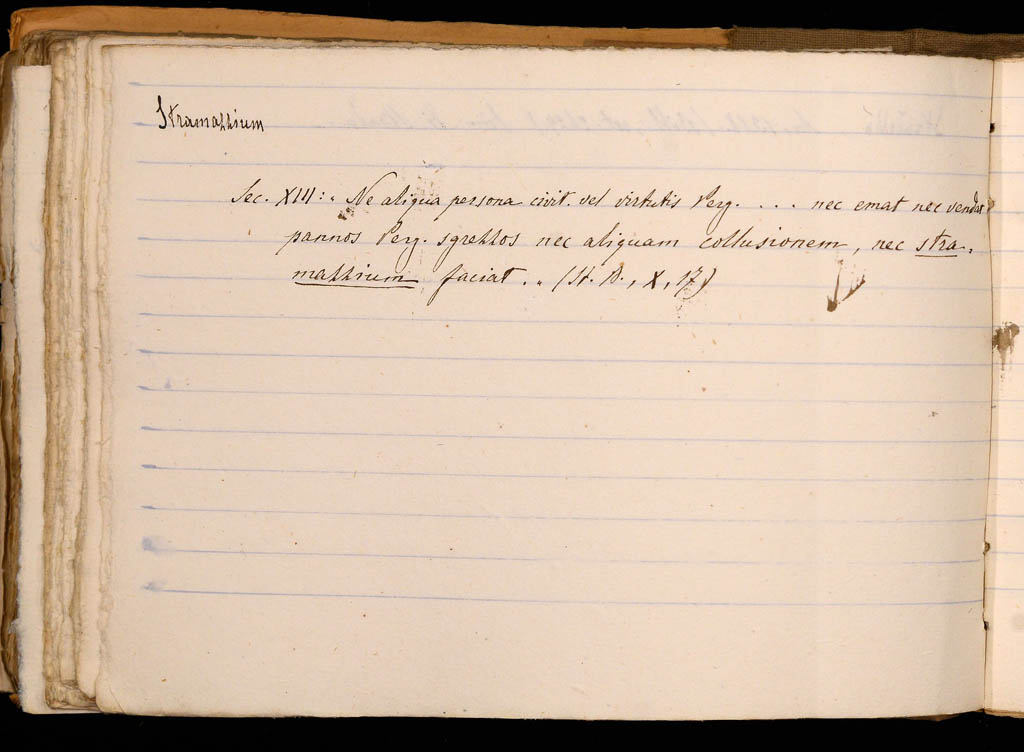 Stramazzium
Sec. XIII: „ Ne aliqua persona civit. vel virtutis Perg. . . . nec emat nec vendat
pannos Perg. sgrezzos nec aliquam collusionem, nec stra-
mazzium faciat. „ (St. B., X, 17)